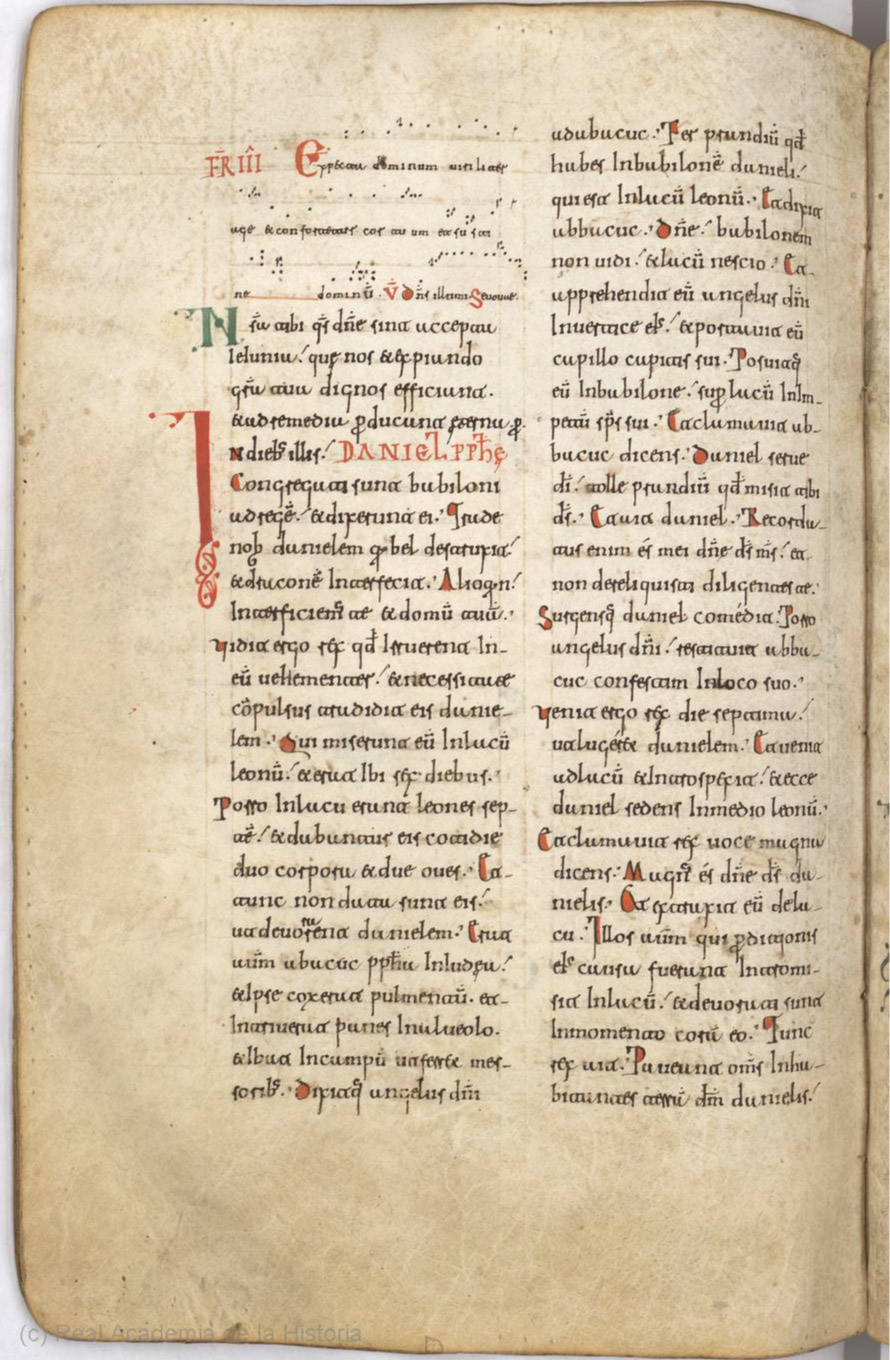 FR IIII Expecta dominum uiriliter
age & confortetur cor tuum et susti
ne dominū. V Dn̄s illum. Seuouae.
Nr̄a tibi qs dn̄e sint accepta
Ieiunia. que nos & expiando
gr̄a tua dignos efficiunt.
& ad remedia p̄ducant eterna. p̄.
IN dieb; illis. DANIEL PPHE
Congregati sunt babiloni
ad regē. & dixerunt ei. Trade
nob danielem q̄ bel destruxit.
& draconē Interfecit. Alioqn.
Interficiem̄ te & domū tuā.
Vidit ergo rex qd̄ Irruerent In-
eū uehementer. & necessitate
cōpulsus tradidit eis danie-
lem. Qui miserunt eū Inlacū
leonū. & erat Ibi sex diebus.
Porro Inlacu erant leones sep-
tē. & dabantur eis cotidie
duo corpora & due oues. Et
tunc non data sunt eis.
ut deuorarent danielem. Erat
autm abacuc ppha Iniudea.
& Ipse coxerat pulmentū. et
Intriuerat panes Inalueolo.
& Ibat Incampū ut ferret mes-
sorib;. Dixitq̄ angelus dn̄i
adabacuc. Fer prandiū qd̄
habes Inbabilonē danieli.
qui est Inlacū leonū. Et dixit
abbacuc. Dn̄e. babilonem
non uidi. & lacū nescio. Et
apprehendit eū angelus dn̄i
Inuertice eī. & portauit eū
capillo capitis sui. Posuitq̄
eū Inbabilone. sup̄ lacū Inim-
petū sp̄s sui. Et clamauit ab-
bacuc dicens. Daniel serue
dī. tolle prandiū qd̄ misit tibi
dš. Et ait daniel. Recorda-
tus enim és mei dn̄e dš mš. et
non dereliquisti diligentes te.
Surgensq̄ daniel comédit. Porro
angelus dn̄i. restituit abba-
cuc confestim Inloco suo.
Venit ergo rex die septima.
ut luger& danielem. Et uenit
adlacū & Introspexit. & ecce
daniel sedens Inmedio leonū.
Et clamauit rex uoce magna
dicens. Magn̄ és dn̄e dš da-
nielis. Et extraxit eū delac
cu. Illos autm qui p̄ditionis
eī causa fuerunt Intromi-
sit Inlacū. & deuorati sunt
Inmomento corā eo. Tunc
rex ait. Paueant om̄s Inha-
bitantes terrā dm̄ danielis.